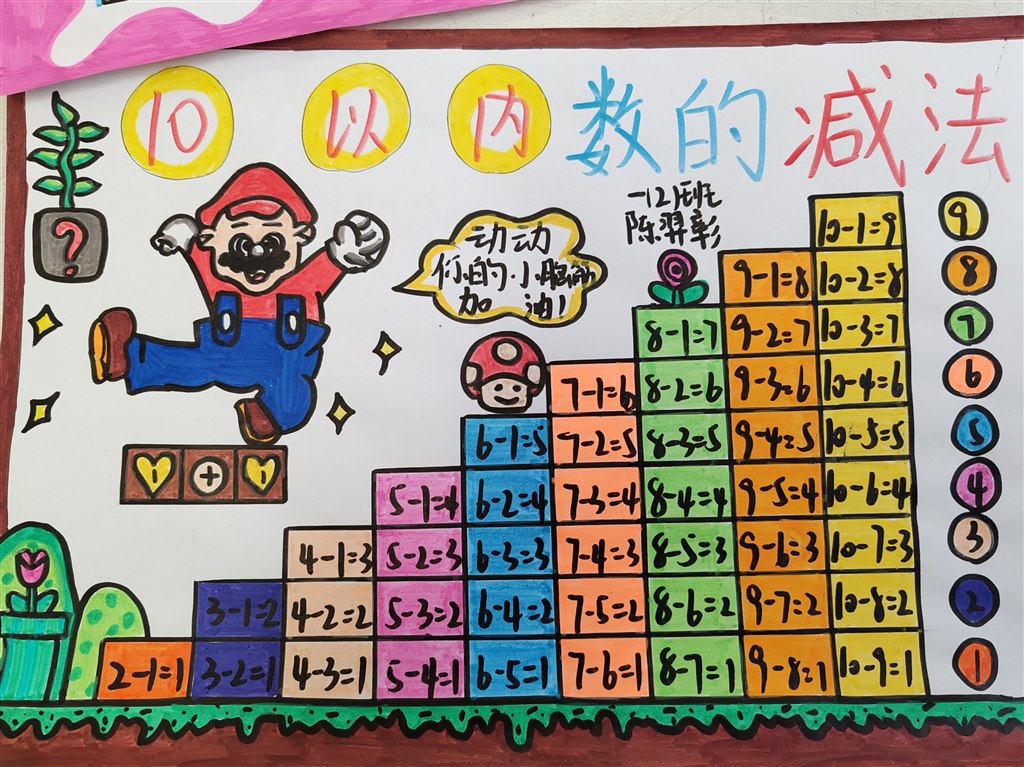 10以内数的减法
一(2)班
陈羿彰
动动
你的小脑筋
加油!
?
+
10-1=9 9
9-1=8 10-2=8 8
8-1=7 9-2=7 10-3=7 7
7-1=6 8-2=6 9-3=6 10-4=6 6
6-1=5 7-2=5 8-3=5 9-4=5 10-5=5 5
5-1=4 6-2=4 7-3=4 8-4=4 9-5=4 10-6=4 4
4-1=3 5-2=3 6-3=3 7-4=3 8-5=3 9-6=3 10-7=3 3
3-1=2 4-2=2 5-3=2 6-4=2 7-5=2 8-6=2 9-7=2 10-8=2 2
2-1=1 3-2=1 4-3=1 5-4=1 6-5=1 7-6=1 8-7=1 9-8=1 10-9=1 1